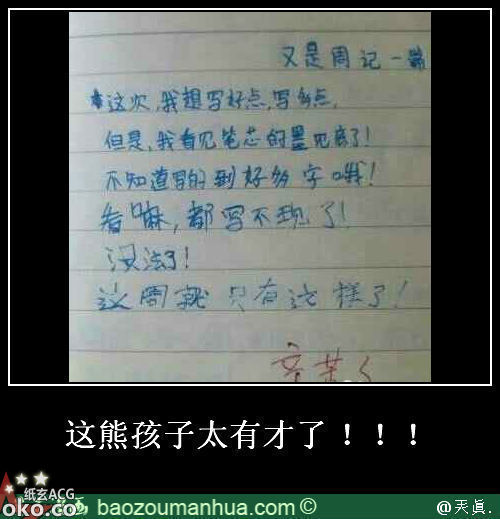 又是周记一篇
这次,我想写好点,写多点,
但是,我看见笔芯的墨见底了!
不知道写的到好多字哦!
看嘛,都写不现了!
没法了!
这周就只有这样了!
辛苦了
这熊孩子太有才了!!!
纸玄ACG
oko.co
baozoumanhua.com ©
@天真.